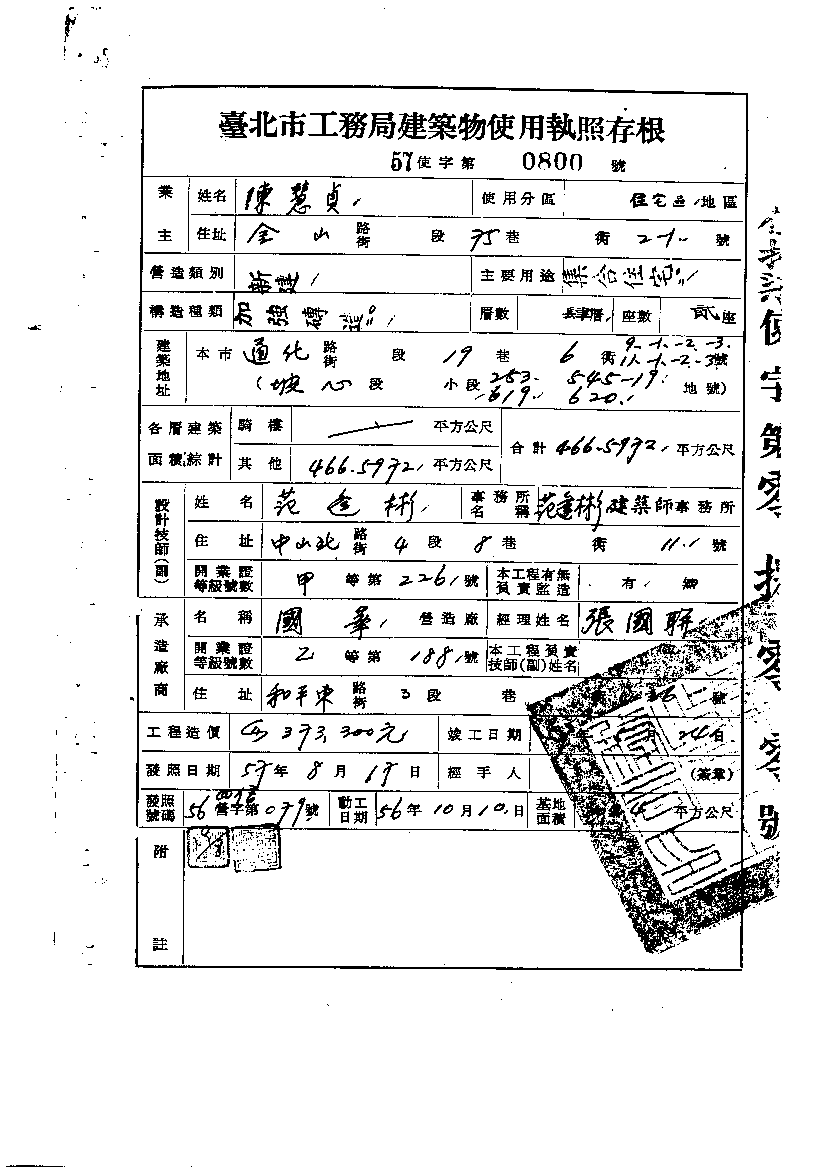 臺北市工務局建築物使用執照存根
57使字第 0800 號
業主 姓名 陳慧貞 使用分區 住宅區 地區
住址 金山 路街 段 75巷 衖 2-1 號
營造類別 新建 主要用途 集合住宅
構造種類 加強磚造 層數 肆層 座數 貳座
建築地址 本市 通化 路街 段 19 巷 6 衖 9.-1.-2.-3. 11.-1.-2.-3號
(坡心段 小段 253. 545-19. 619. 620. 地號)
各層建築面積綜計 騎樓 平方公尺 合計 466.5972 平方公尺
其他 466.5972 平方公尺
設計技師(副) 姓名 范 彬 事務所名稱 范 彬建築師事務所
住址 中山北 路街 4段 8巷 衖 11.1 號
開業證等級號數 甲 等第 2261號 本工程有無負責監造 有 無
承造廠商 名稱 國華 營造廠 經理姓名 張國
開業證等級號數 乙 等第 1881號 本工程負責技師(副)姓名
住址 和平東 路街 3段 巷 號
工程造價 393,300元 竣工日期 年 月 24日
發照日期 57年8月17日 經手人 (簽章)
發照號碼 56 營字第079號 動工日期 56年10月10日 基地面積 平方公尺
附註
使字第零捌零零號